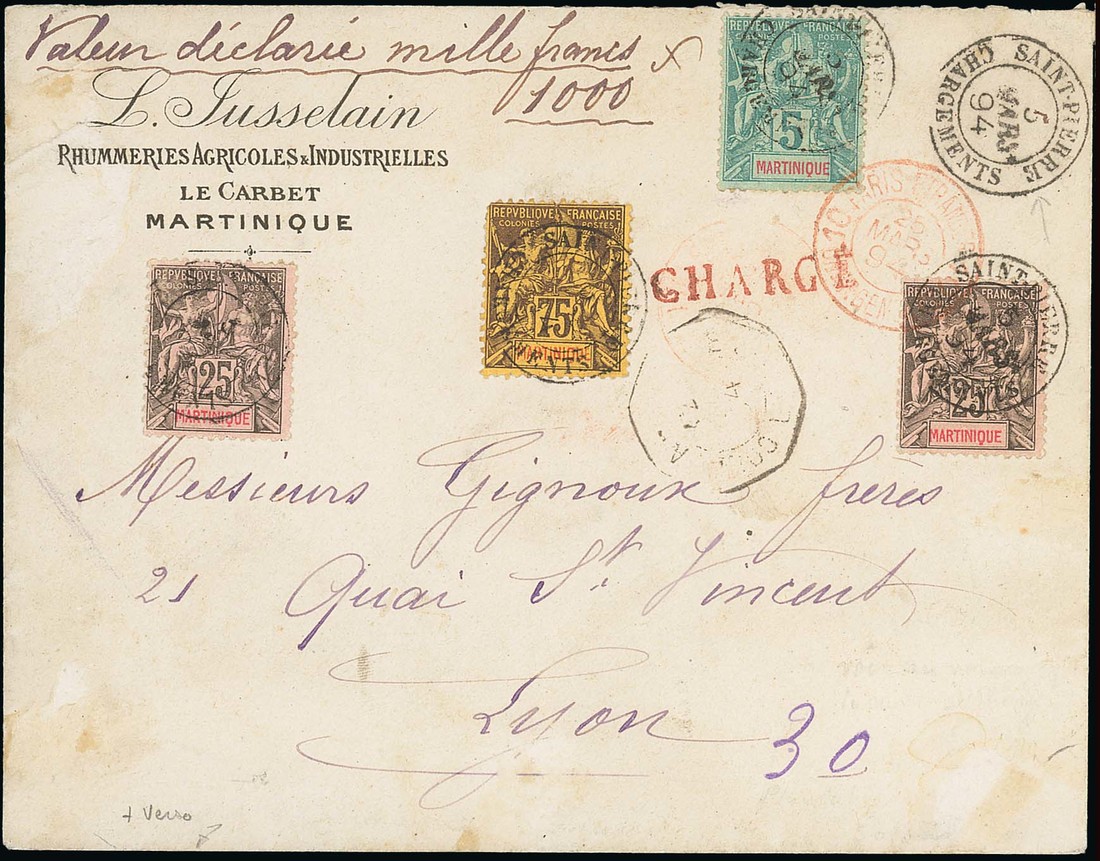 Valeur déclarée mille francs x
1000
L. Jusselain
RHUMMERIES AGRICOLES & INDUSTRIELLES
LE CARBET
MARTINIQUE
REPVBLIQVE FRANÇAISE
COLONIES POSTES
5
MARTINIQUE
SAINT-PIERRE
CHARGEMENTS
5
MARS
94
REPVBLIQVE FRANÇAISE
COLONIES POSTES
75
MARTINIQUE
CHARGÉ
PARIS
MARS
REPVBLIQVE FRANÇAISE
COLONIES POSTES
25
MARTINIQUE
REPVBLIQVE FRANÇAISE
COLONIES
25
MARTINIQUE
SAINT-PIERRE
Messieurs Gignoux frères
21 Quai St Vincent
Lyon
30
+ Verso